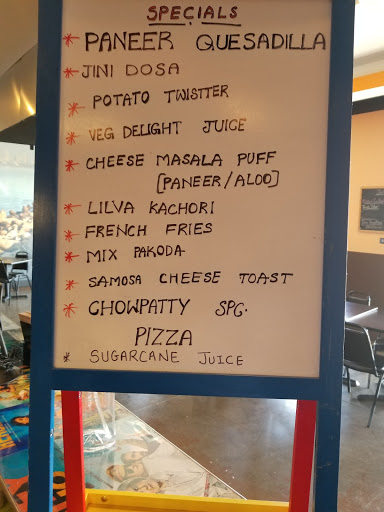 SPECIALS
* PANEER QUESADILLA
* JINI DOSA
* POTATO TWISTTER
* VEG DELIGHT JUICE
* CHEESE MASALA PUFF
[PANEER/ALOO]
* LILVA KACHORI
* FRENCH FRIES
* MIX PAKODA
* SAMOSA CHEESE TOAST
* CHOWPATTY SPG.
PIZZA
* SUGARCANE JUICE